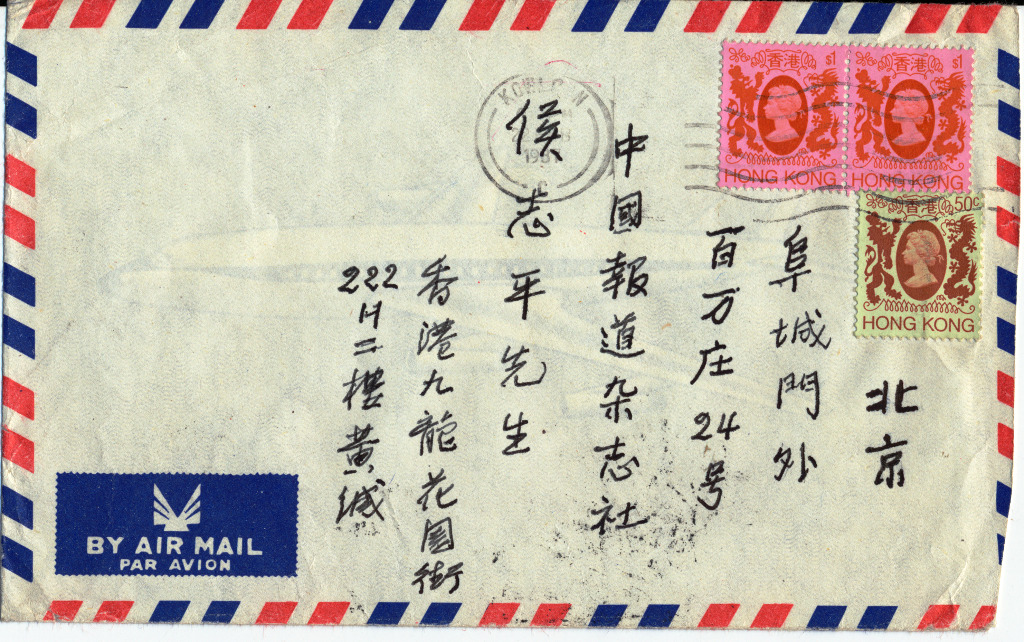 北京
阜城門外
百万庄24号
中國報道杂志社
侯志平先生
香港九龍花園街
222 H 二樓黄
香港 $1
HONG KONG
香港 $1
HONG KONG
香港 50c
HONG KONG
KOWLOON
BY AIR MAIL
PAR AVION